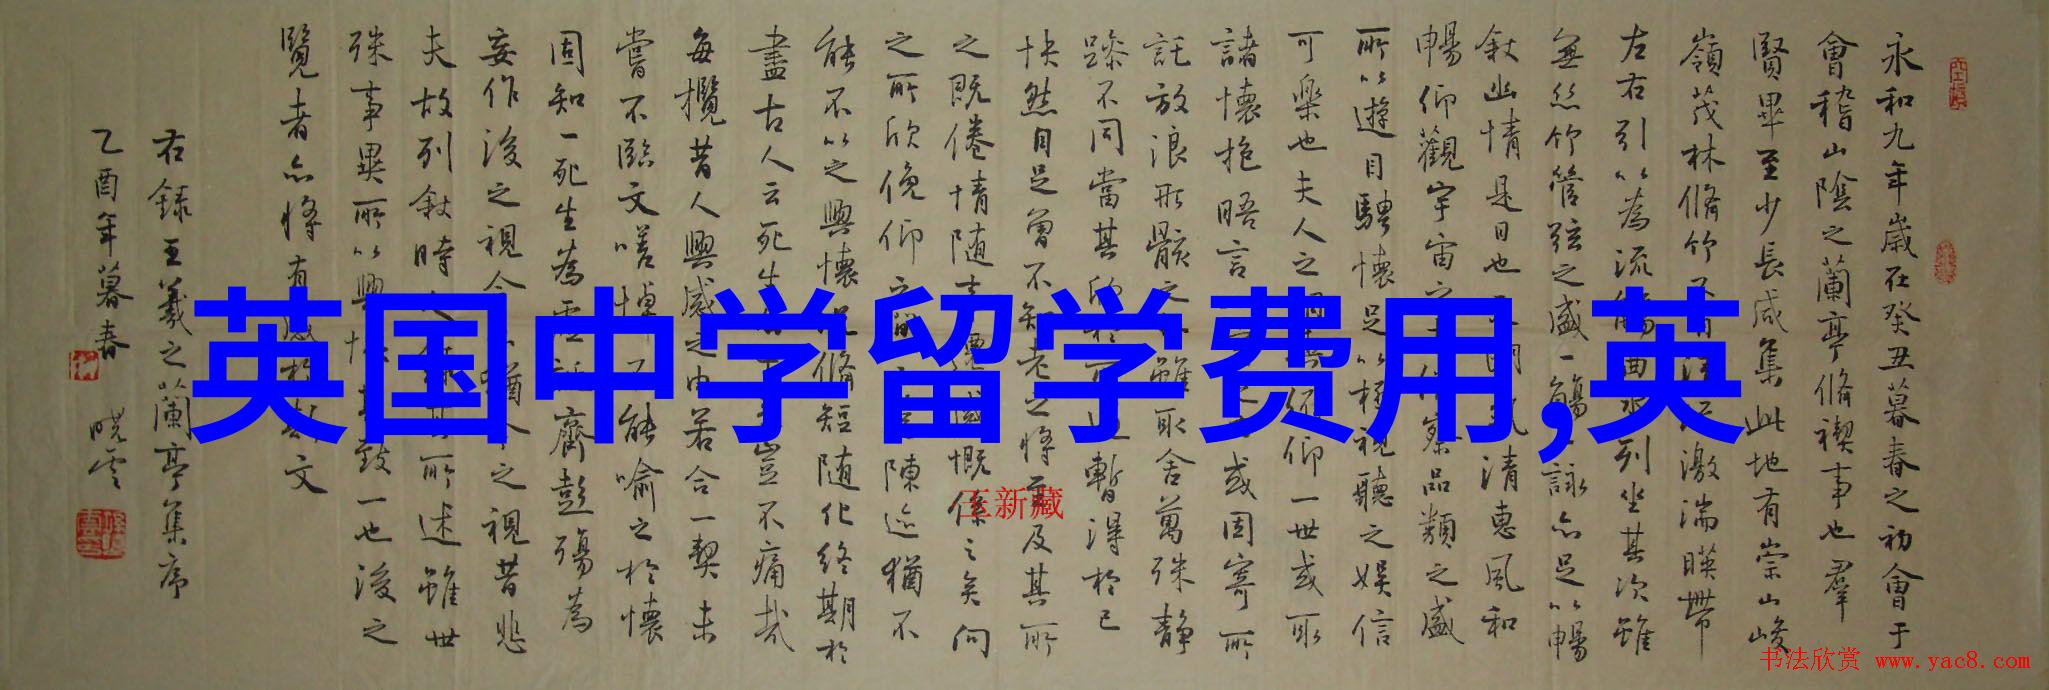 永和九年歲在癸丑暮春之初會于
會稽山陰之蘭亭脩禊事也羣
賢畢至少長咸集此地有崇山峻
嶺茂林脩竹又有清流激湍暎帶
左右引以為流觴曲水列坐其次雖
無絲竹管弦之盛一觴一詠亦足以暢
敘幽情是日也天朗氣清惠風和
暢仰觀宇宙之大俯察品類之盛
所以遊目騁懷足以極視聽之娛信
可樂也夫人之相與俯仰一世或取
諸懷抱晤言一室之內或因寄所
託放浪形骸之外雖取舍萬殊靜
躁不同當其欣於所遇暫得於己
快然自足曾不知老之將至及其所
之既倦情隨事遷感慨係之矣向
之所欣俛仰之間以為陳迹猶不
能不以之興懷況脩短隨化終期於
盡古人云死生亦大矣豈不痛哉
每攬昔人興感之由若合一契未
嘗不臨文嗟悼不能喻之於懷
固知一死生為虛誕齊彭殤為
妄作後之視今亦猶今之視昔悲
夫故列敘時人錄其所述雖世
殊事異所以興懷其致一也後之
覽者亦將有感於斯文
右錄王羲之蘭亭集序
乙酉年暮春 曉雲
英国中学留学费用,英
王新藏
书法欣赏 www.yac8.com